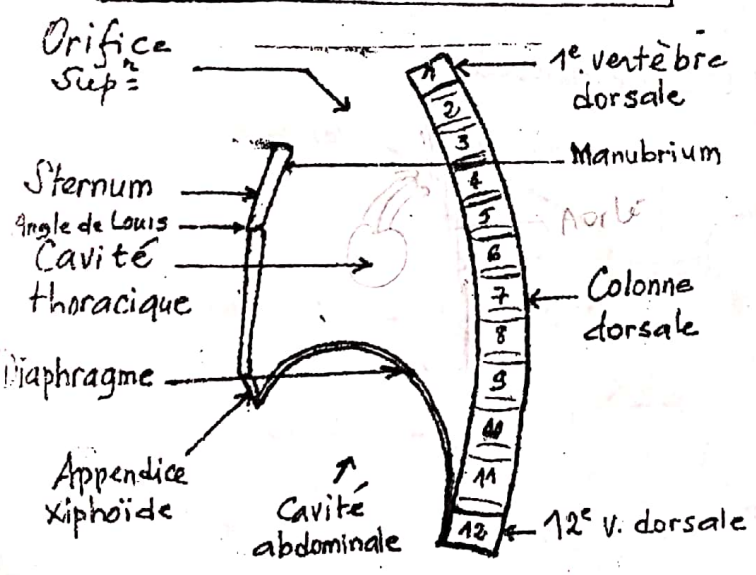 Orifice
Supr
1e. vertèbre
dorsale
Manubrium
Sternum
Angle de Louis
Cavité
thoracique
Aorte
Colonne
dorsale
Diaphragme
Appendice
xiphoïde
Cavité
abdominale
12e v. dorsale
1
2
3
4
5
6
7
8
9
10
11
12